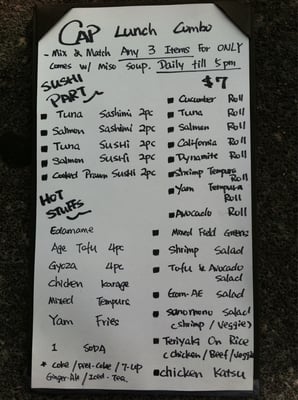 CAP Lunch Combo
- Mix & Match Any 3 Items For ONLY
Comes w/ Miso Soup. Daily till 5pm
$7
SUSHI
PART
Tuna Sashimi 2pc
Salmon Sashimi 2pc
Tuna Sushi 2pc
Salmon Sushi 2pc
Cooked Prawn Sushi 2pc
HOT
STUFFS
Edamame
Age Tofu 4pc
Gyoza 4pc
Chicken Karage
Mixed Tempura
Yam Fries
1 SODA
* Coke / Diet-Coke / 7-up
Ginger-Ale / Iced-Tea
Cucumber Roll
Tuna Roll
Salmon Roll
California Roll
Dynamite Roll
Shrimp Tempura
Roll
Yam Tempura
Roll
Avocado Roll
Mixed Field Greens
Shrimp Salad
Tofu & Avocado
Salad
Gom-AE Salad
Sanomono Salad
(Shrimp / Veggie)
Teriyaki On Rice
(Chicken / Beef / Veggie)
Chicken Katsu